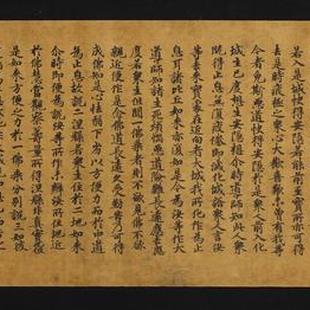 若入是城快得安隱若能前至寶所亦可得
去是時疲極之眾心大歡喜歎未曾有我等
今者免斯惡道快得安隱於是眾人前入化
城生已度想生安隱想爾時導師知此人眾
既得止息無復疲惓即滅化城語眾人言汝
等去來寶處在近向者大城我所化作為止
息耳諸比丘如來亦復如是今為汝等作大
導師知諸生死煩惱惡道險難長遠應去應
度若眾生但聞一佛乘者則不欲見佛不欲
親近便作是念佛道長遠久受懃苦乃可得
成佛知是心怯弱下劣以方便力而於中道
為止息故說二涅槃若眾生住於二地如來
爾時即便為說汝等所作未辦汝所住地近
於佛慧當觀察籌量所得涅槃非真實也但
是如來方便之力於一佛乘分別說三如彼